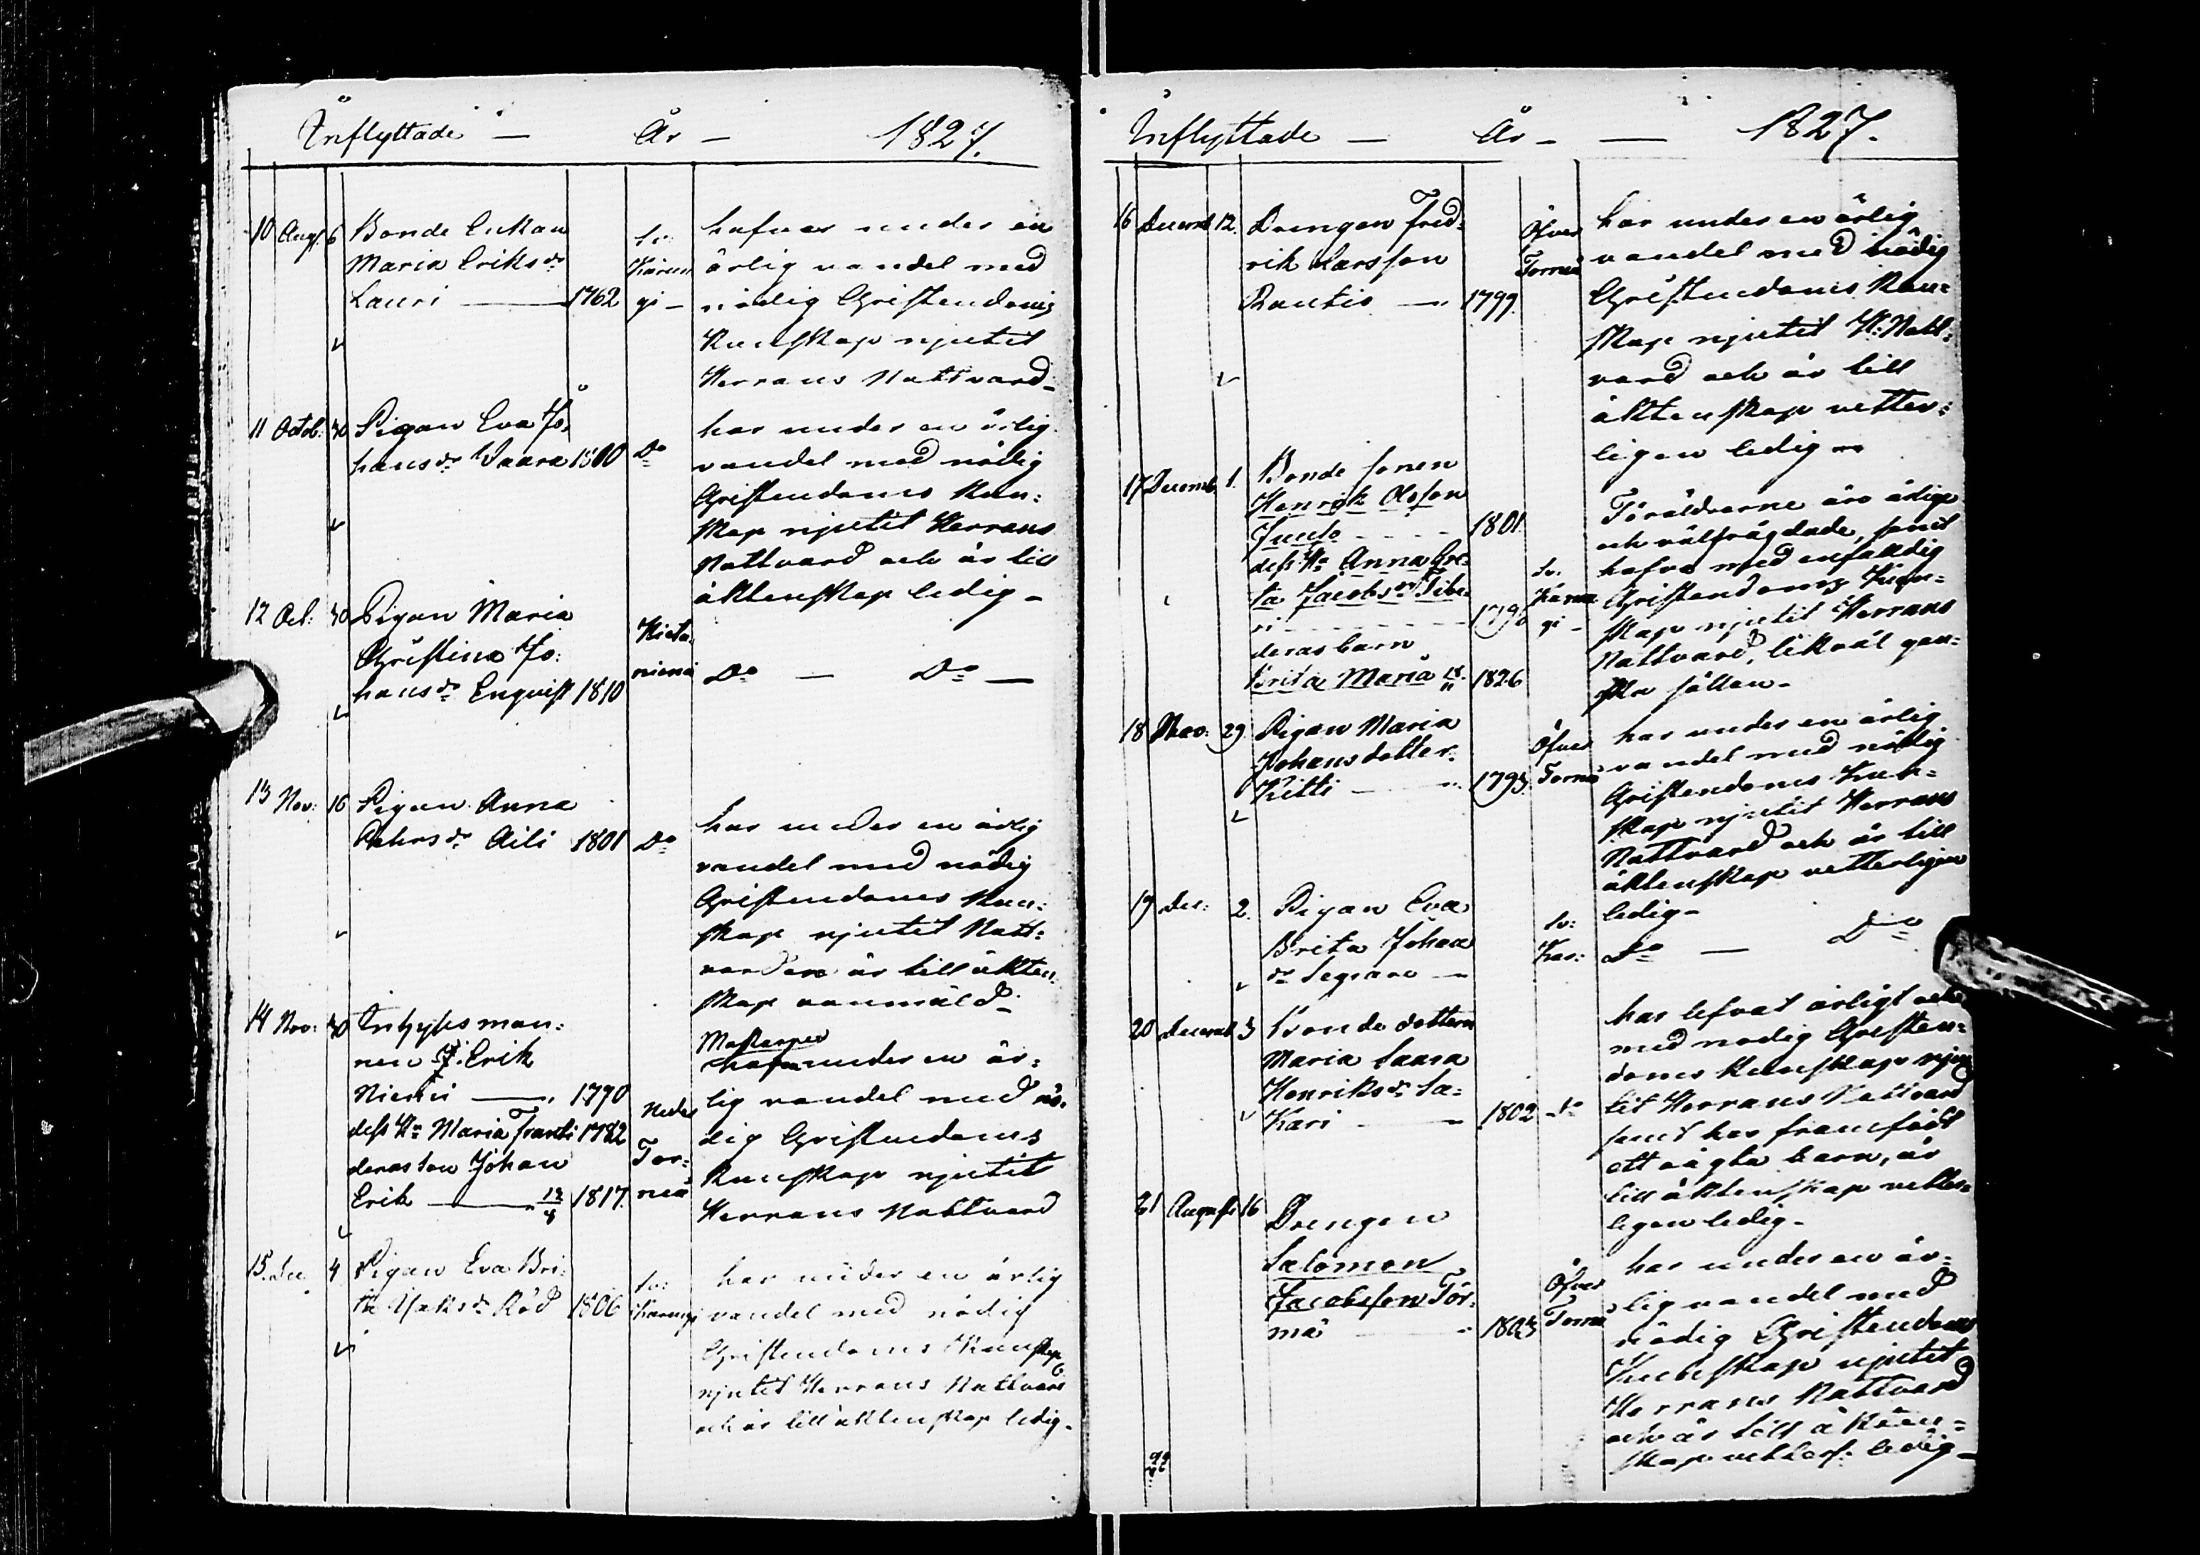 Inflyttade — År — 1827.
10 Aug. 6 Bonde Enkan
Maria Eriksdr
Lauri — 1762
Sv:
Karun
gi —
hafver under en
ärlig vandel med
nödig Christendoms
Kunskap njutit
Herrans Nattvard —
11 Octob: 30 Pigan Eva Jo-
hansdr Vaara 1800 Do
har under en ärlig
vandel med nödig
Christendoms Kun:
skap njutit Herrans
Nattvard och är till
äktenskap ledig —
12 Oct: 30 Pigan Maria
Christina Jo:
hansdr Enqvist 1810
Hieta-
niemi
Do — Do —
13 Nov: 16 Pigan Anna
Aili 1801 Do
har under en ärlig
vandel med nödig
Christendoms Kun:
skap njutit Natt:
varden är till äkten:
skap
14 Nov: 30 Inhysesman:
nen J. Erik
1790
dess Hu Maria Franti 1782
deras son Johan
Erik — 1817
Neder
Tor-
neå
under en är-
lig vandel med nö-
dig Christendoms
Kunskap njutit
Herrans Nattvard
15. Dec. 4 Pigan Eva Bri-
ta Isaksdr Röd 1806
Sv:
Karungi
har under en ärlig
vandel med nödig
Christendoms Kunskap
njutit Herrans Nattvard
och är till äktenskap ledig —
Inflyttade — År — — 1827.
16 Decemb 12. Drengen Fred-
rik Larsson
Rautio — 1799.
Öfver
Torneå
har under en ärlig
vandel med nödig
Christendoms Kun-
skap njutit H: Natt-
vard och är till
äktenskap vetter-
ligen ledig —
17 Decemb. 1. Bonde sonen
Henrik Olofson
Juuso 1801
dess Hu Anna Gre-
ta Jacobsdr
deras barn
Brita Maria 1826
Sv.
Karun
gi —
Föräldrarne äro ärlige
och välfrägdade, samt
hafva med enfaldig
Christendoms Kun-
skap njutit Herrans
Nattvard, likväl gan-
ska sällan —
18 Nov: 29. Pigan Maria
Johansdotter
Kitti — 1793.
Öfver
Torneå
har under en ärlig
vandel med nödig
Christendoms Kun-
skap njutit Herrans
Nattvard och är till
äktenskap vetterligen
ledig —
19 Dec: 2. Pigan Eva
Brita Johans
dr —
Sv:
Kar:
Do — Do
20 Decemb 3 Bonde dottern
Maria Saara
Henriksdr La-
kari — 1802 do
har lefvat ärligt och
med nödig Christen-
doms Kunskap nju
tit Herrans Nattvard
samt har framfödt
ett oägta barn, är
till äktenskap vetter-
ligen ledig —
21 Augusti 16 Drengen
Salomon
Jacobsson Tör-
mä 1803
Öfver
Torneå
har under en är-
lig vandel med
nödig Christendoms
Kunskap njutit
Herrans Nattvard
och är till äkten-
skap vetterl: ledig —